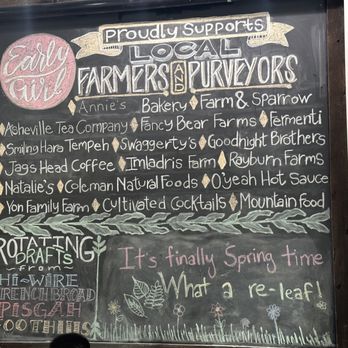 Early Girl
Proudly Supports
LOCAL
FARMERS AND PURVEYORS
Annie's Bakery Farm & Sparrow
Asheville Tea Company Fancy Bear Farms Fermenti
Smiling Hara Tempeh Swaggerty's Goodnight Brothers
Jags Head Coffee Imladris Farm Rayburn Farms
Natalie's Coleman Natural Foods O'yeah Hot Sauce
Yon Family Farm Cultivated Cocktails Mountain Food
ROTATING
DRAFTS
from
HI-WIRE
FRENCH BROAD
PISGAH
FOOTHILLS
It's finally Spring time
What a re-leaf!